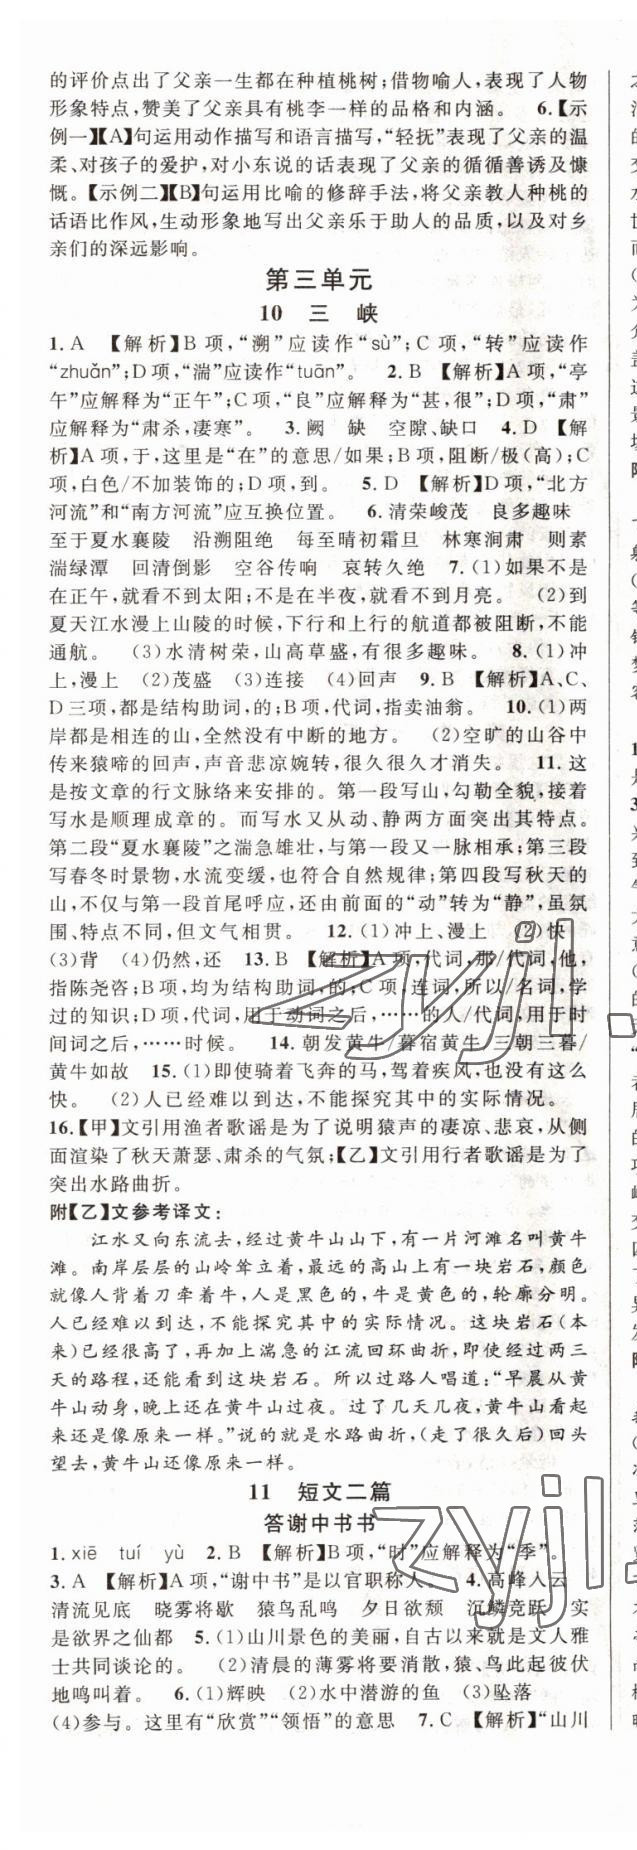 的评价点出了父亲一生都在种植桃树；借物喻人，表现了人物
形象特点，赞美了父亲具有桃李一样的品格和内涵。 6.【示
例一】【A】句运用动作描写和语言描写，“轻抚”表现了父亲的温
柔、对孩子的爱护，对小东说的话表现了父亲的循循善诱及慷
慨。【示例二】【B】句运用比喻的修辞手法，将父亲教人种桃的
话语比作风，生动形象地写出父亲乐于助人的品质，以及对乡
亲们的深远影响。
第三单元
10 三 峡
1. A 【解析】B 项，“溯”应读作“sù”；C 项，“转”应读作
“zhuǎn”；D项，“湍”应读作“tuān”。 2. B 【解析】A项，“亭
午”应解释为“正午”；C项，“良”应解释为“甚，很”；D项，“肃”
应解释为“肃杀，凄寒”。 3. 阙 缺 空隙、缺口 4. D 【解
析】A项，于，这里是“在”的意思/如果；B项，阻断/极（高）；C
项，白色/不加装饰的；D项，到。 5. D 【解析】D项，“北方
河流”和“南方河流”应互换位置。 6. 清荣峻茂 良多趣味
至于夏水襄陵 沿溯阻绝 每至晴初霜旦 林寒涧肃 则素
湍绿潭 回清倒影 空谷传响 哀转久绝 7.（1）如果不是
在正午，就看不到太阳；不是在半夜，就看不到月亮。 （2）到
夏天江水漫上山陵的时候，下行和上行的航道都被阻断，不能
通航。 （3）水清树荣，山高草盛，有很多趣味。 8.（1）冲
上，漫上 （2）茂盛 （3）连接 （4）回声 9. B 【解析】A、C、
D三项，都是结构助词，的；B项，代词，指卖油翁。 10.（1）两
岸都是相连的山，全然没有中断的地方。 （2）空旷的山谷中
传来猿啼的回声，声音悲凉婉转，很久很久才消失。 11. 这
是按文章的行文脉络来安排的。第一段写山，勾勒全貌，接着
写水是顺理成章的。而写水又从动、静两方面突出其特点。
第二段“夏水襄陵”之湍急雄壮，与第一段又一脉相承；第三段
写春冬时景物，水流变缓，也符合自然规律；第四段写秋天的
山，不仅与第一段首尾呼应，还由前面的“动”转为“静”，虽氛
围、特点不同，但文气相贯。 12.（1）冲上、漫上 （2）快
（3）背 （4）仍然，还 13. B 【解析】A项，代词，那/代词，他，
指陈尧咨；B项，均为结构助词，的；C项，连词，所以/名词，学
过的知识；D项，代词，用于动词之后，……的人/代词，用于时
间词之后，……时候。 14. 朝发黄牛/暮宿黄牛 三朝三暮/
黄牛如故 15.（1）即使骑着飞奔的马，驾着疾风，也没有这么
快。 （2）人已经难以到达，不能探究其中的实际情况。
16.【甲】文引用渔者歌谣是为了说明猿声的凄凉、悲哀，从侧
面渲染了秋天萧瑟、肃杀的气氛；【乙】文引用行者歌谣是为了
突出水路曲折。
附【乙】文参考译文：
江水又向东流去，经过黄牛山山下，有一片河滩名叫黄牛
滩。南岸层层的山岭耸立着，最远的高山上有一块岩石，颜色
就像人背着刀牵着牛，人是黑色的，牛是黄色的，轮廓分明。
人已经难以到达，不能探究其中的实际情况。这块岩石（本
来）已很高了，再加上湍急的江流回环曲折，即使经过两三
天的路程，还能看到这块岩石。所以过路人唱道：“早晨从黄
牛山动身，晚上还在黄牛山过夜。过了几天几夜，黄牛山看起
来还是像原来一样。”说的就是水路曲折，（走了很久后）回头
望去，黄牛山还像原来一样。
11 短文二篇
答谢中书书
1. xiē tuí yù 2. B 【解析】B项，“时”应解释为“季”。
3. A 【解析】A项，“谢中书”是以官职称人。 4. 高峰入云
清流见底 晓雾将歇 猿鸟乱鸣 夕日欲颓 沉鳞竞跃 实
是欲界之仙都 5.（1）山川景色的美丽，自古以来就是文人雅
士共同谈论的。 （2）清晨的薄雾将要消散，猿、鸟此起彼伏
地鸣叫着。 6.（1）辉映 （2）水中潜游的鱼 （3）坠落
（4）参与。这里有“欣赏”“领悟”的意思 7. C 【解析】“山川
zyjl.
zyjl.